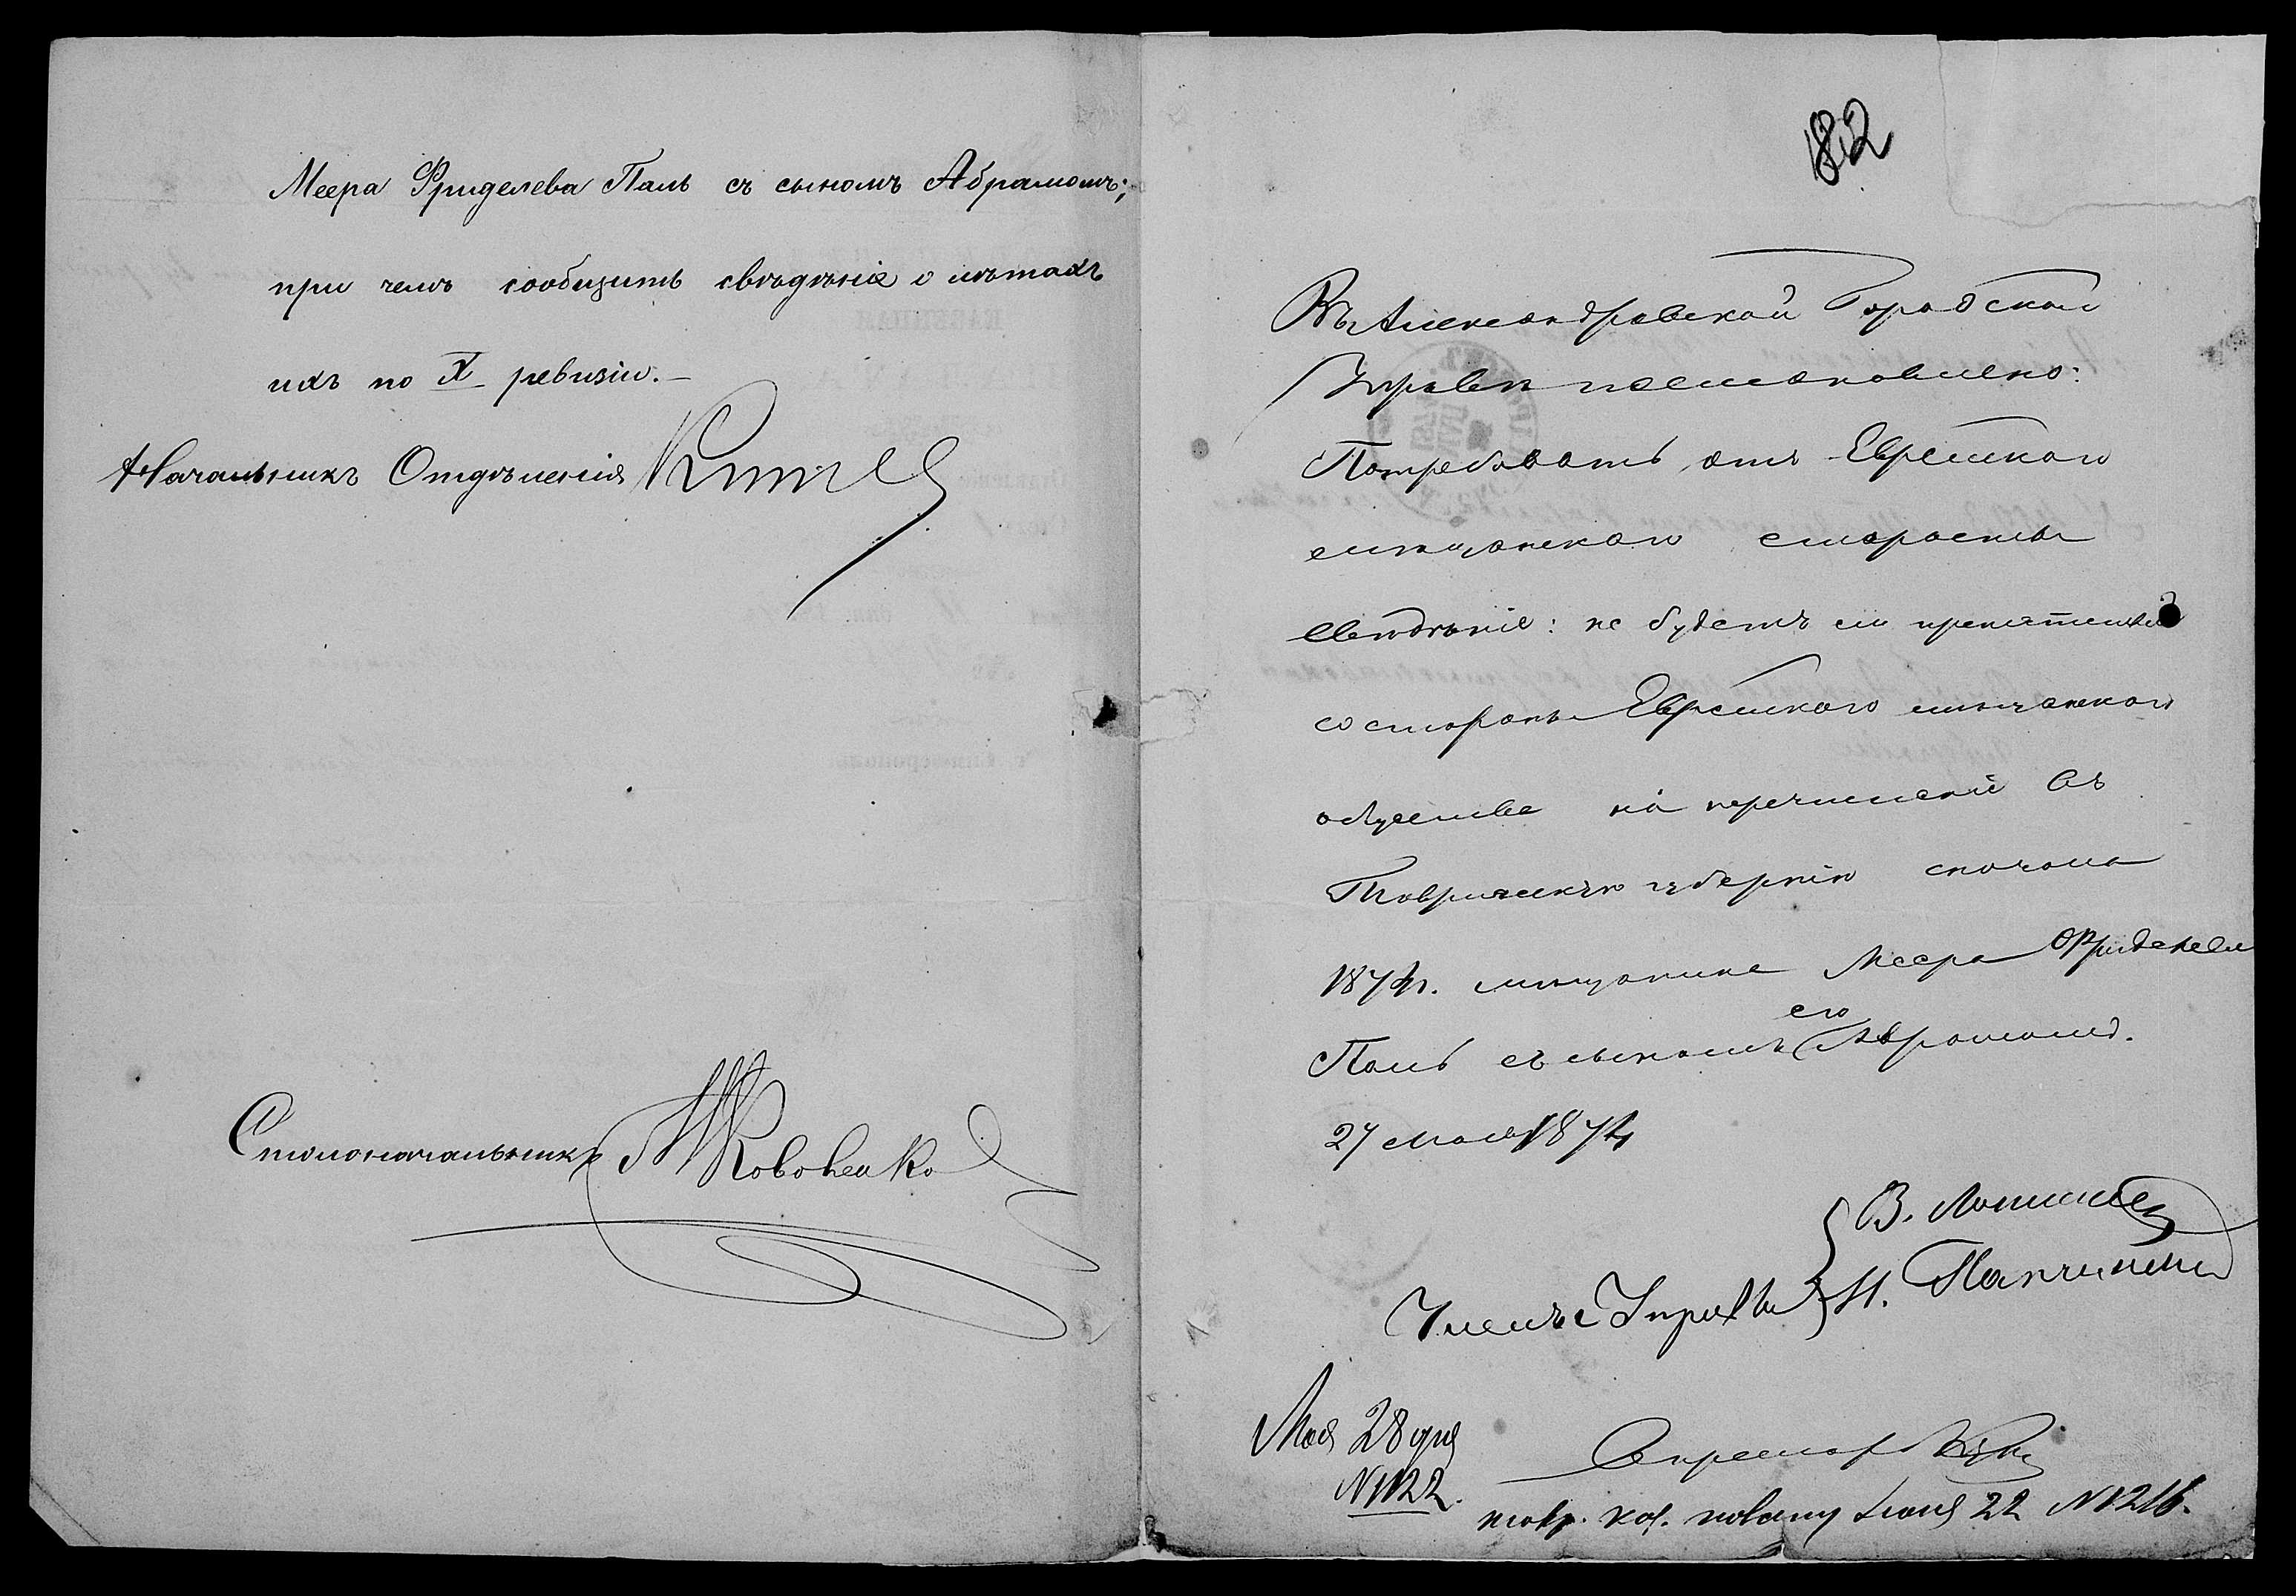 Меера Фриделева Паль съ сыномъ Абрамомъ;
при чемъ сообщить свѣдѣніе о лѣтахъ
ихъ по X ревизіи.—
Начальникъ Отдѣленія
Столоначальникъ
182
Въ Александровской Городской
Управѣ постановлено:
Потребовать отъ Еврейскаго
мѣщанскаго старосты
свѣдѣніе: не будетъ ли препятствія
со стороны Еврейскаго мѣщанскаго
общества на перечисленіе въ
Таврическую губернію сначала
1874г. мѣщанина Меера Фриделева
его
Паль съ сыномъ Абрамомъ.
27 Мая 1874
В.
Члены Управы Н.
Мая 28 дня
N 1122.
Секретарь
Іюня 22 N 1216.